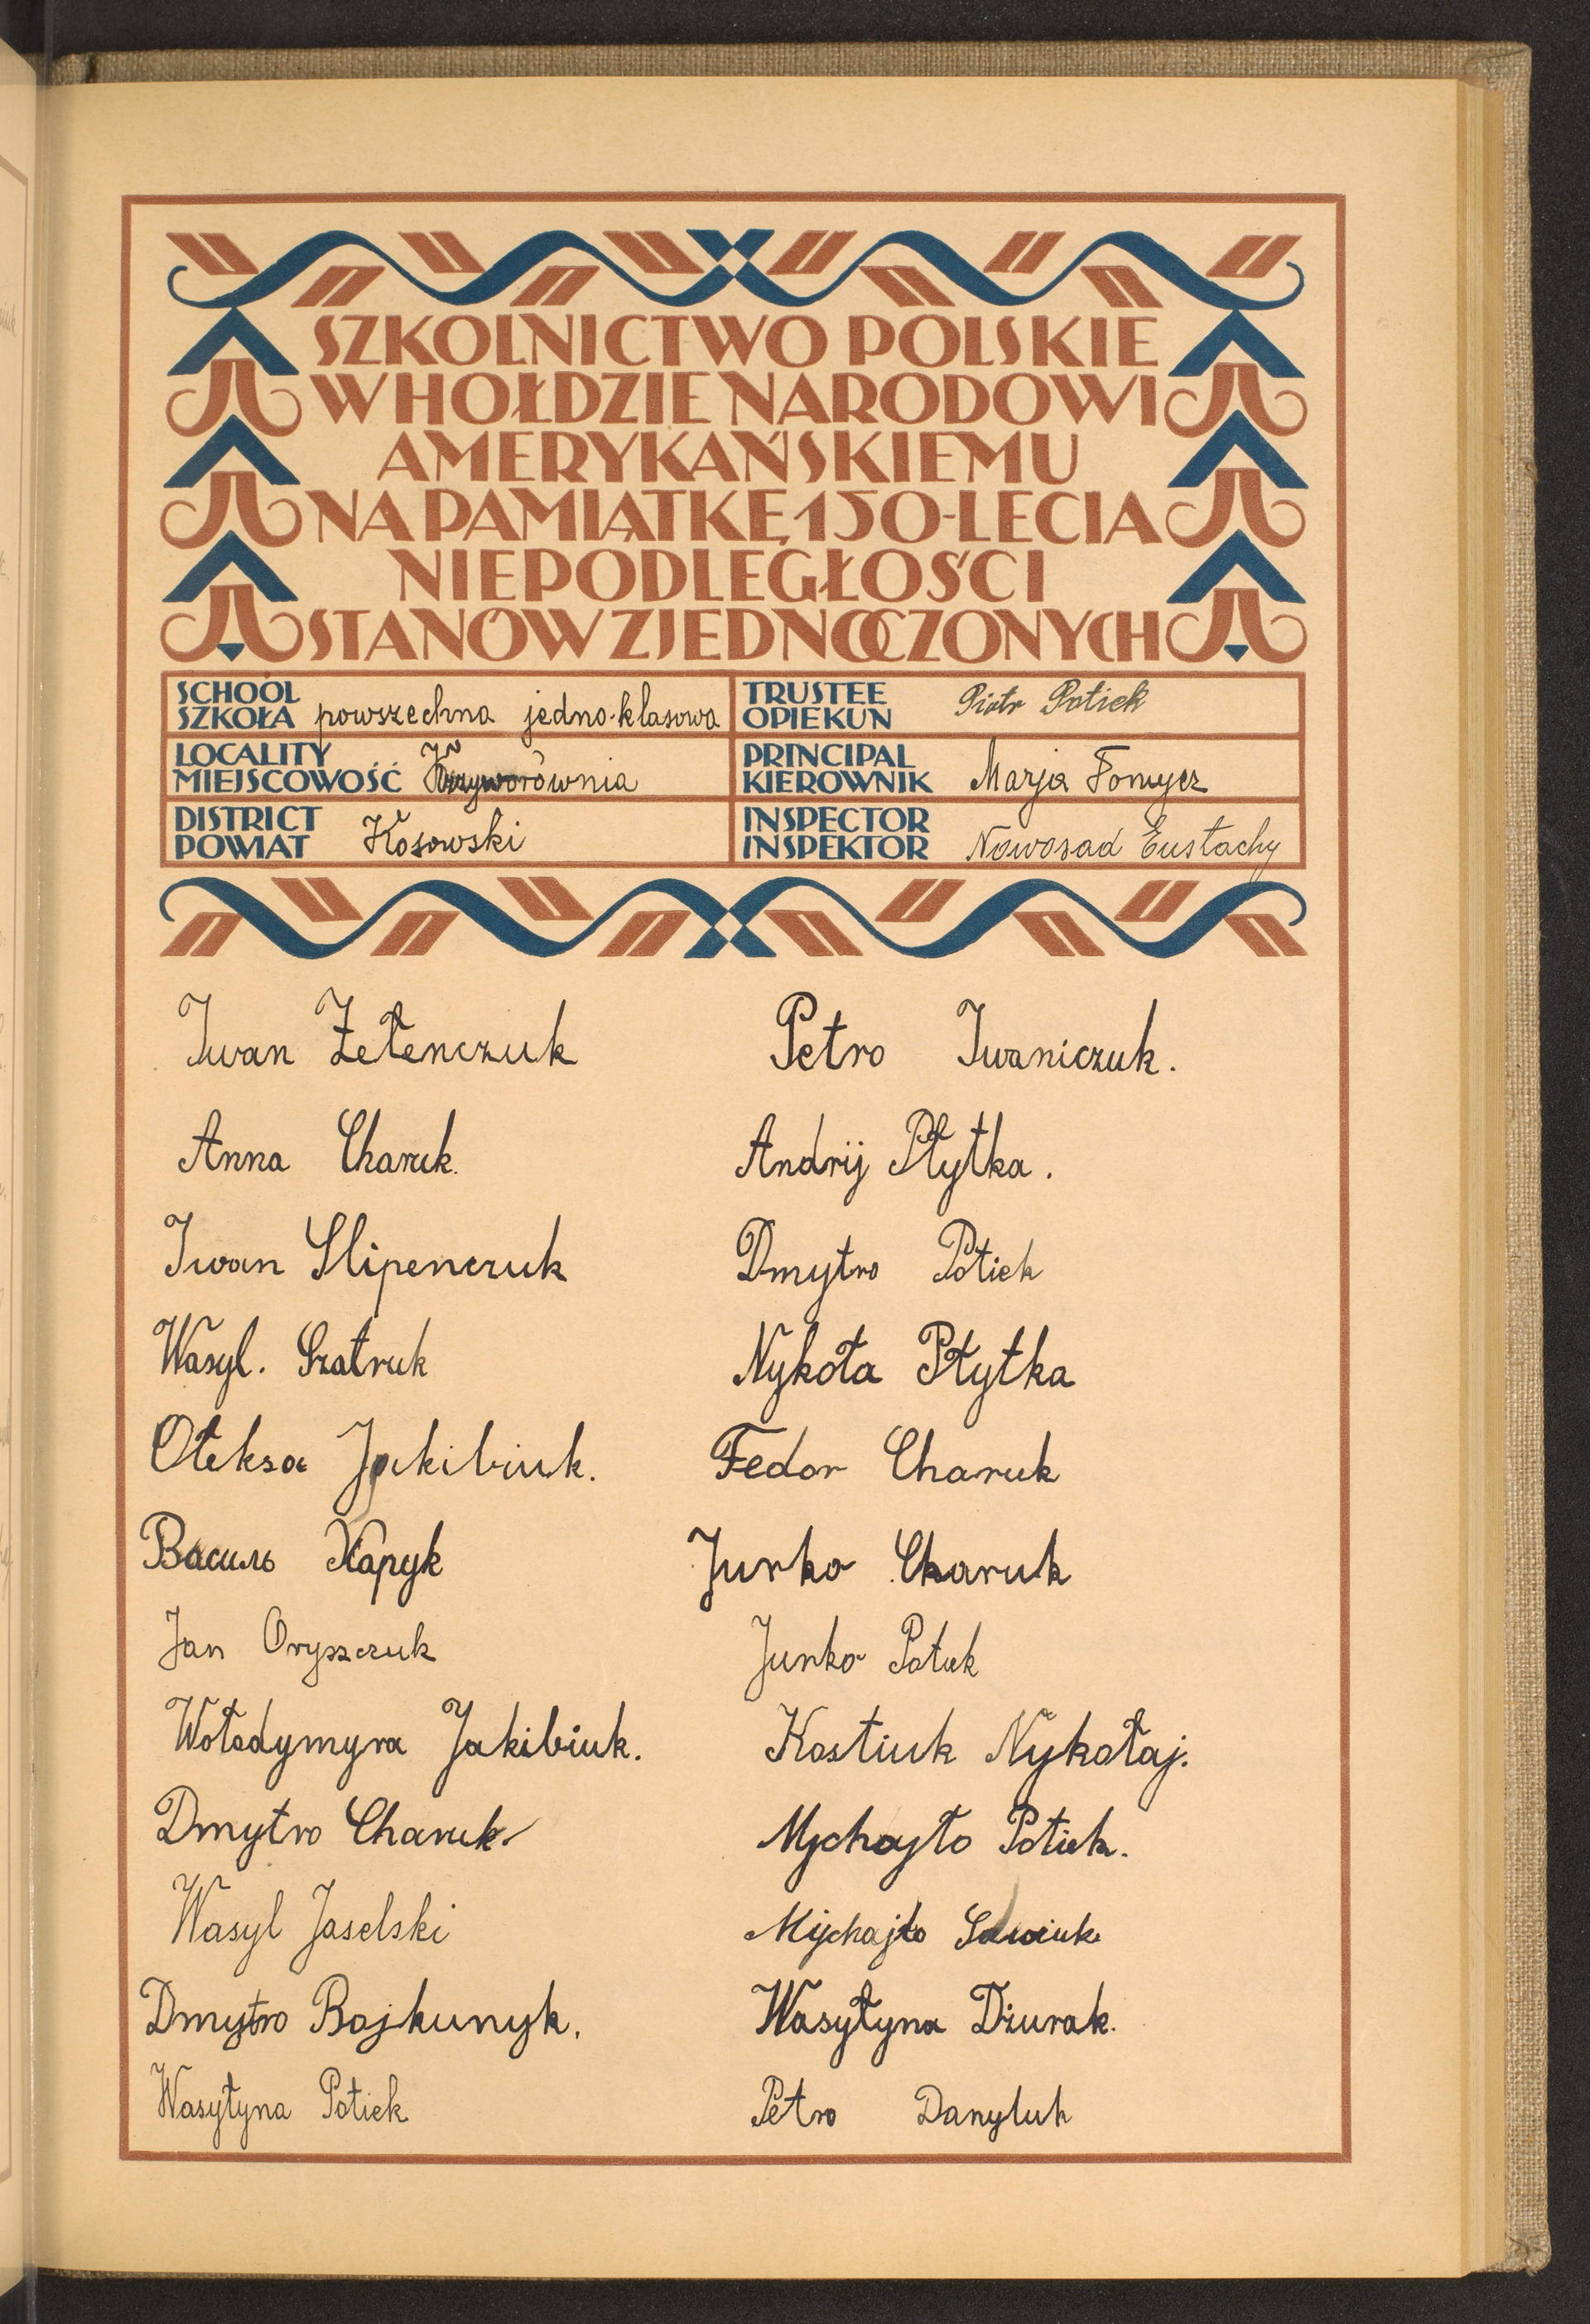 SZKOLNICTWO POLSKIE
W HOŁDZIE NARODOWI
AMERYKAŃSKIEMU
NA PAMIĄTKĘ 150-LECIA
NIEPODLEGŁOŚCI
STANÓW ZJEDNOCZONYCH
SCHOOL
SZKOŁA powszechna jedno-klasowa
TRUSTEE
OPIEKUN Piotr Potiek
LOCALITY
MIEJSCOWOŚĆ Krzyworównia
PRINCIPAL
KIEROWNIK Marja Fomycz
DISTRICT
POWIAT Kosowski
INSPECTOR
INSPEKTOR Nowosad Eustachy
Iwan Zełenczuk
Petro Iwaniczuk.
Anna Charuk.
Andrij Płytka.
Iwan Slipenczuk
Dmytro Potiek
Wasyl. Szatruk
Nykoła Płytka
Ołeksa Jakibiuk.
Fedor Charuk
Василь Харук
Jurko Charuk
Jan Oryszczuk
Jurko Potiek
Wołodymyra Jakibiuk.
Kostiuk Nykołaj.
Dmytro Charuk.
Mychajło Potiek.
Wasyl Jaselski
Mychajło Sawiuk
Dmytro Bojkunyk.
Wasyłyna Dżurak.
Wasyłyna Potiek
Petro Danyluk